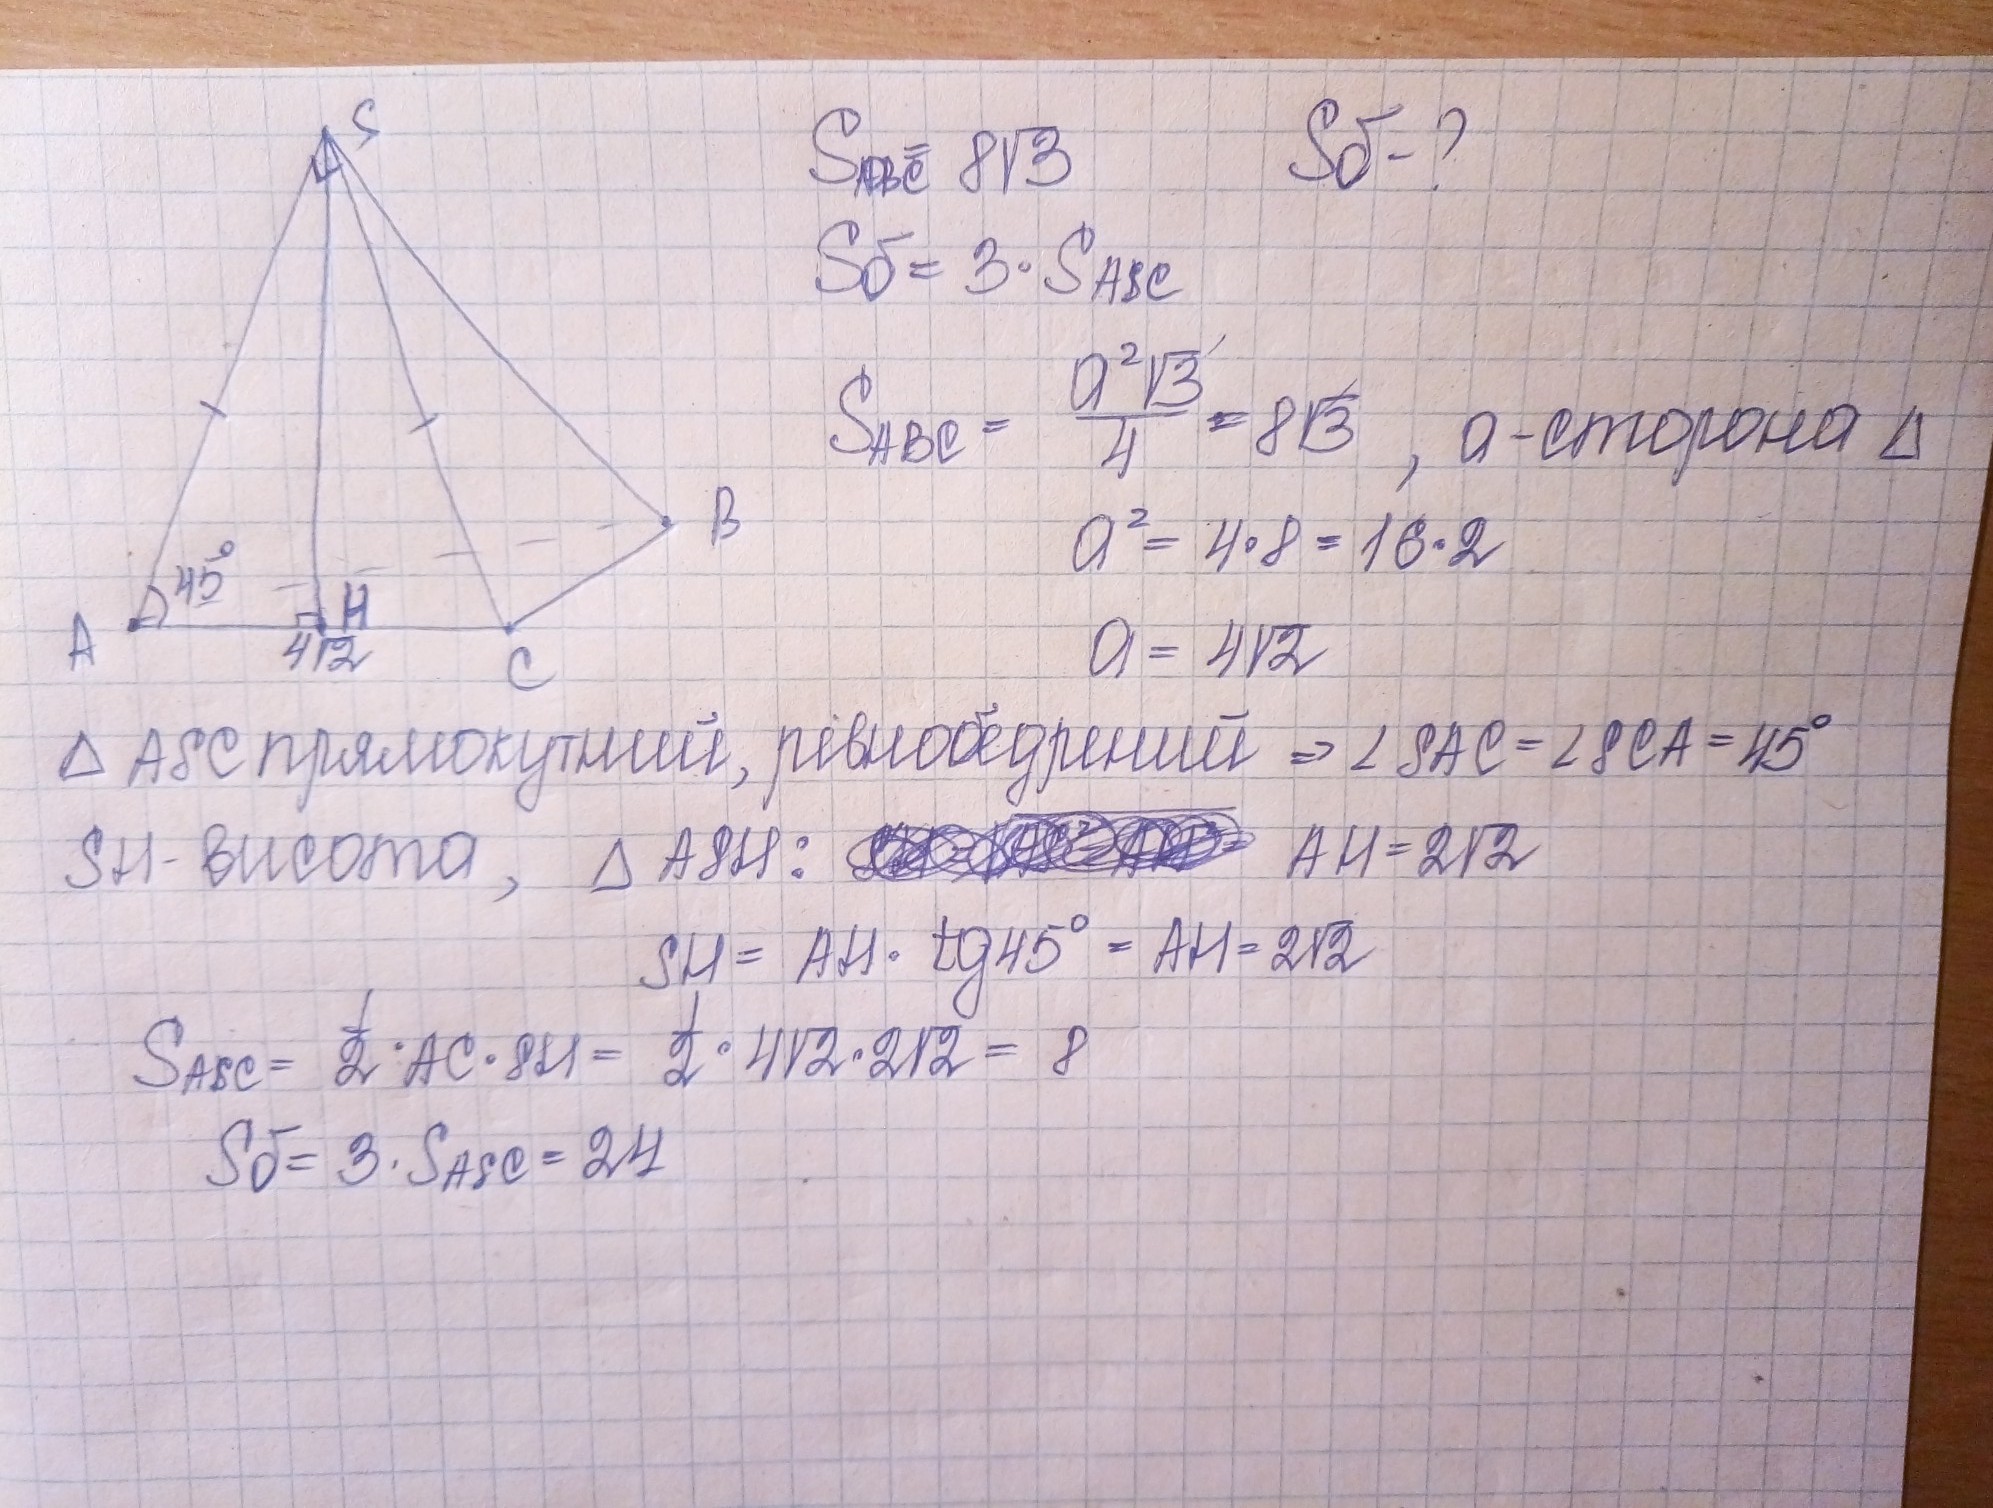 S
45°
A
H
4√2
C
B
S_ABC = 8√3
Sб - ?
Sб = 3 · S_ASC
S_ABC = a²√3/4 = 8√3 , a - сторона Δ
a² = 4·8 = 16·2
a = 4√2
Δ ASC прямокутний, рівнобедрений ⇒ ∠SAC = ∠SCA = 45°
SH - висота, Δ ASH: AH = 2√2
SH = AH · tg45° = AH = 2√2
S_ASC = 1/2 · AC · SH = 1/2 · 4√2 · 2√2 = 8
Sб = 3 · S_ASC = 24